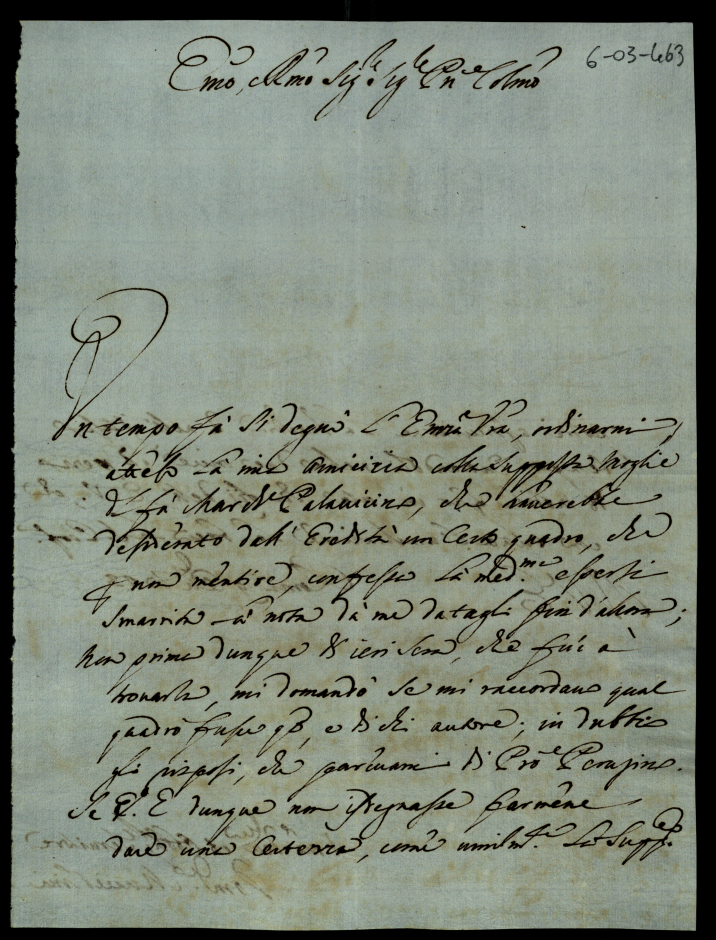 6-03-463
Emo, e Rmo Sig.re Sig.re Pn.e Colmo
Un tempo fà si degnò l'Emza Vra, ordinarmi,
attesa la mia amicizia colla supposta moglie
del fù March.e Palavicino, che averebbe
desiderato dall'Eredità un certo quadro, che
p non mentire, confessa la med.ma essersi
smarrita la nota dà me datagli fin d'allora;
non prima dunque di ieri sera, che fui à
trovarla, mi domandò se mi raccordavo qual
quadro fusse qsto, e di chi autore; in dubbio
gli risposi, che parevami di Pro.e Perugino.
Se V.E dunque non isdegnasse farmene
dare una certezza, come umilm.te La supp.co